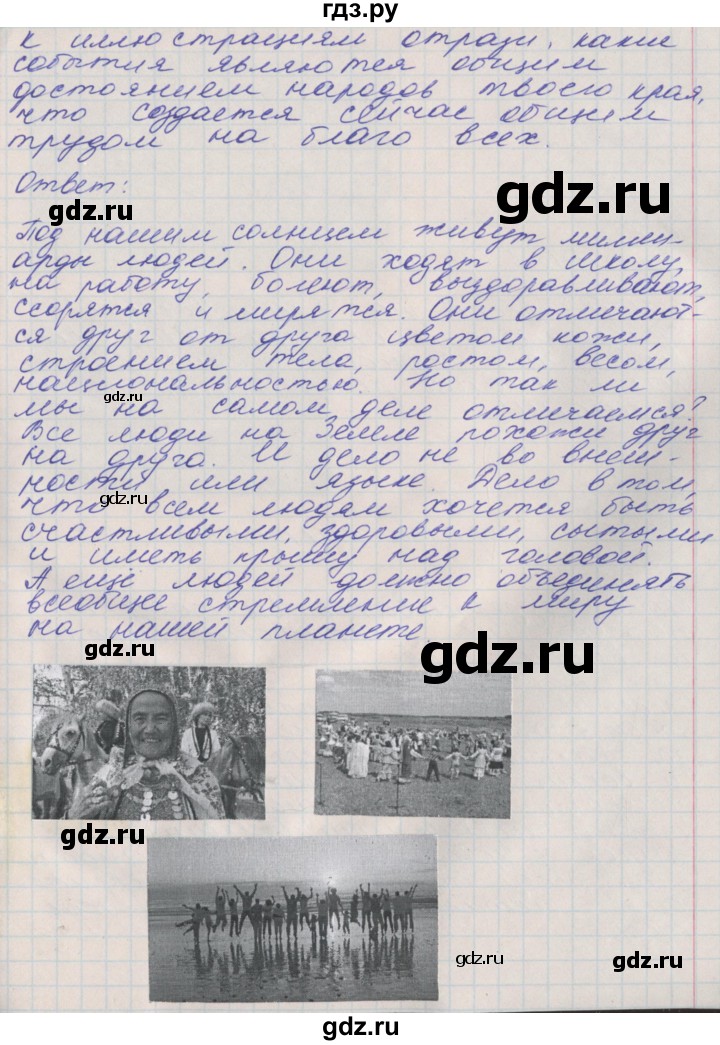 гдз.ру
к иллюстрациям отрази, какие
события являются общим
достоянием народов твоего края,
что создается сейчас общим
трудом на благо всех.
Ответ:
gdz.ru
gdz.ru
Под нашим солнцем живут милли-
арды людей. Они ходят в школу,
на работу, болеют, выздоравливают,
ссорятся и мирятся. Они отличают-
ся друг от друга цветом кожи,
строением тела, ростом, весом,
национальностью. Но так ли
gdz.ru
мы на самом деле отличаемся?
Все люди на Земле похожи друг
на друга. И дело не во внеш-
ности или языке. Дело в том,
gdz.ru
что всем людям хочется быть
счастливыми, здоровыми, сытыми
и иметь крышу над головой.
А еще людей должно объединять
всеобщее стремление к миру
на нашей планете.
gdz.ru
gdz.ru
gdz.ru
gdz.ru
gdz.ru
gdz.ru